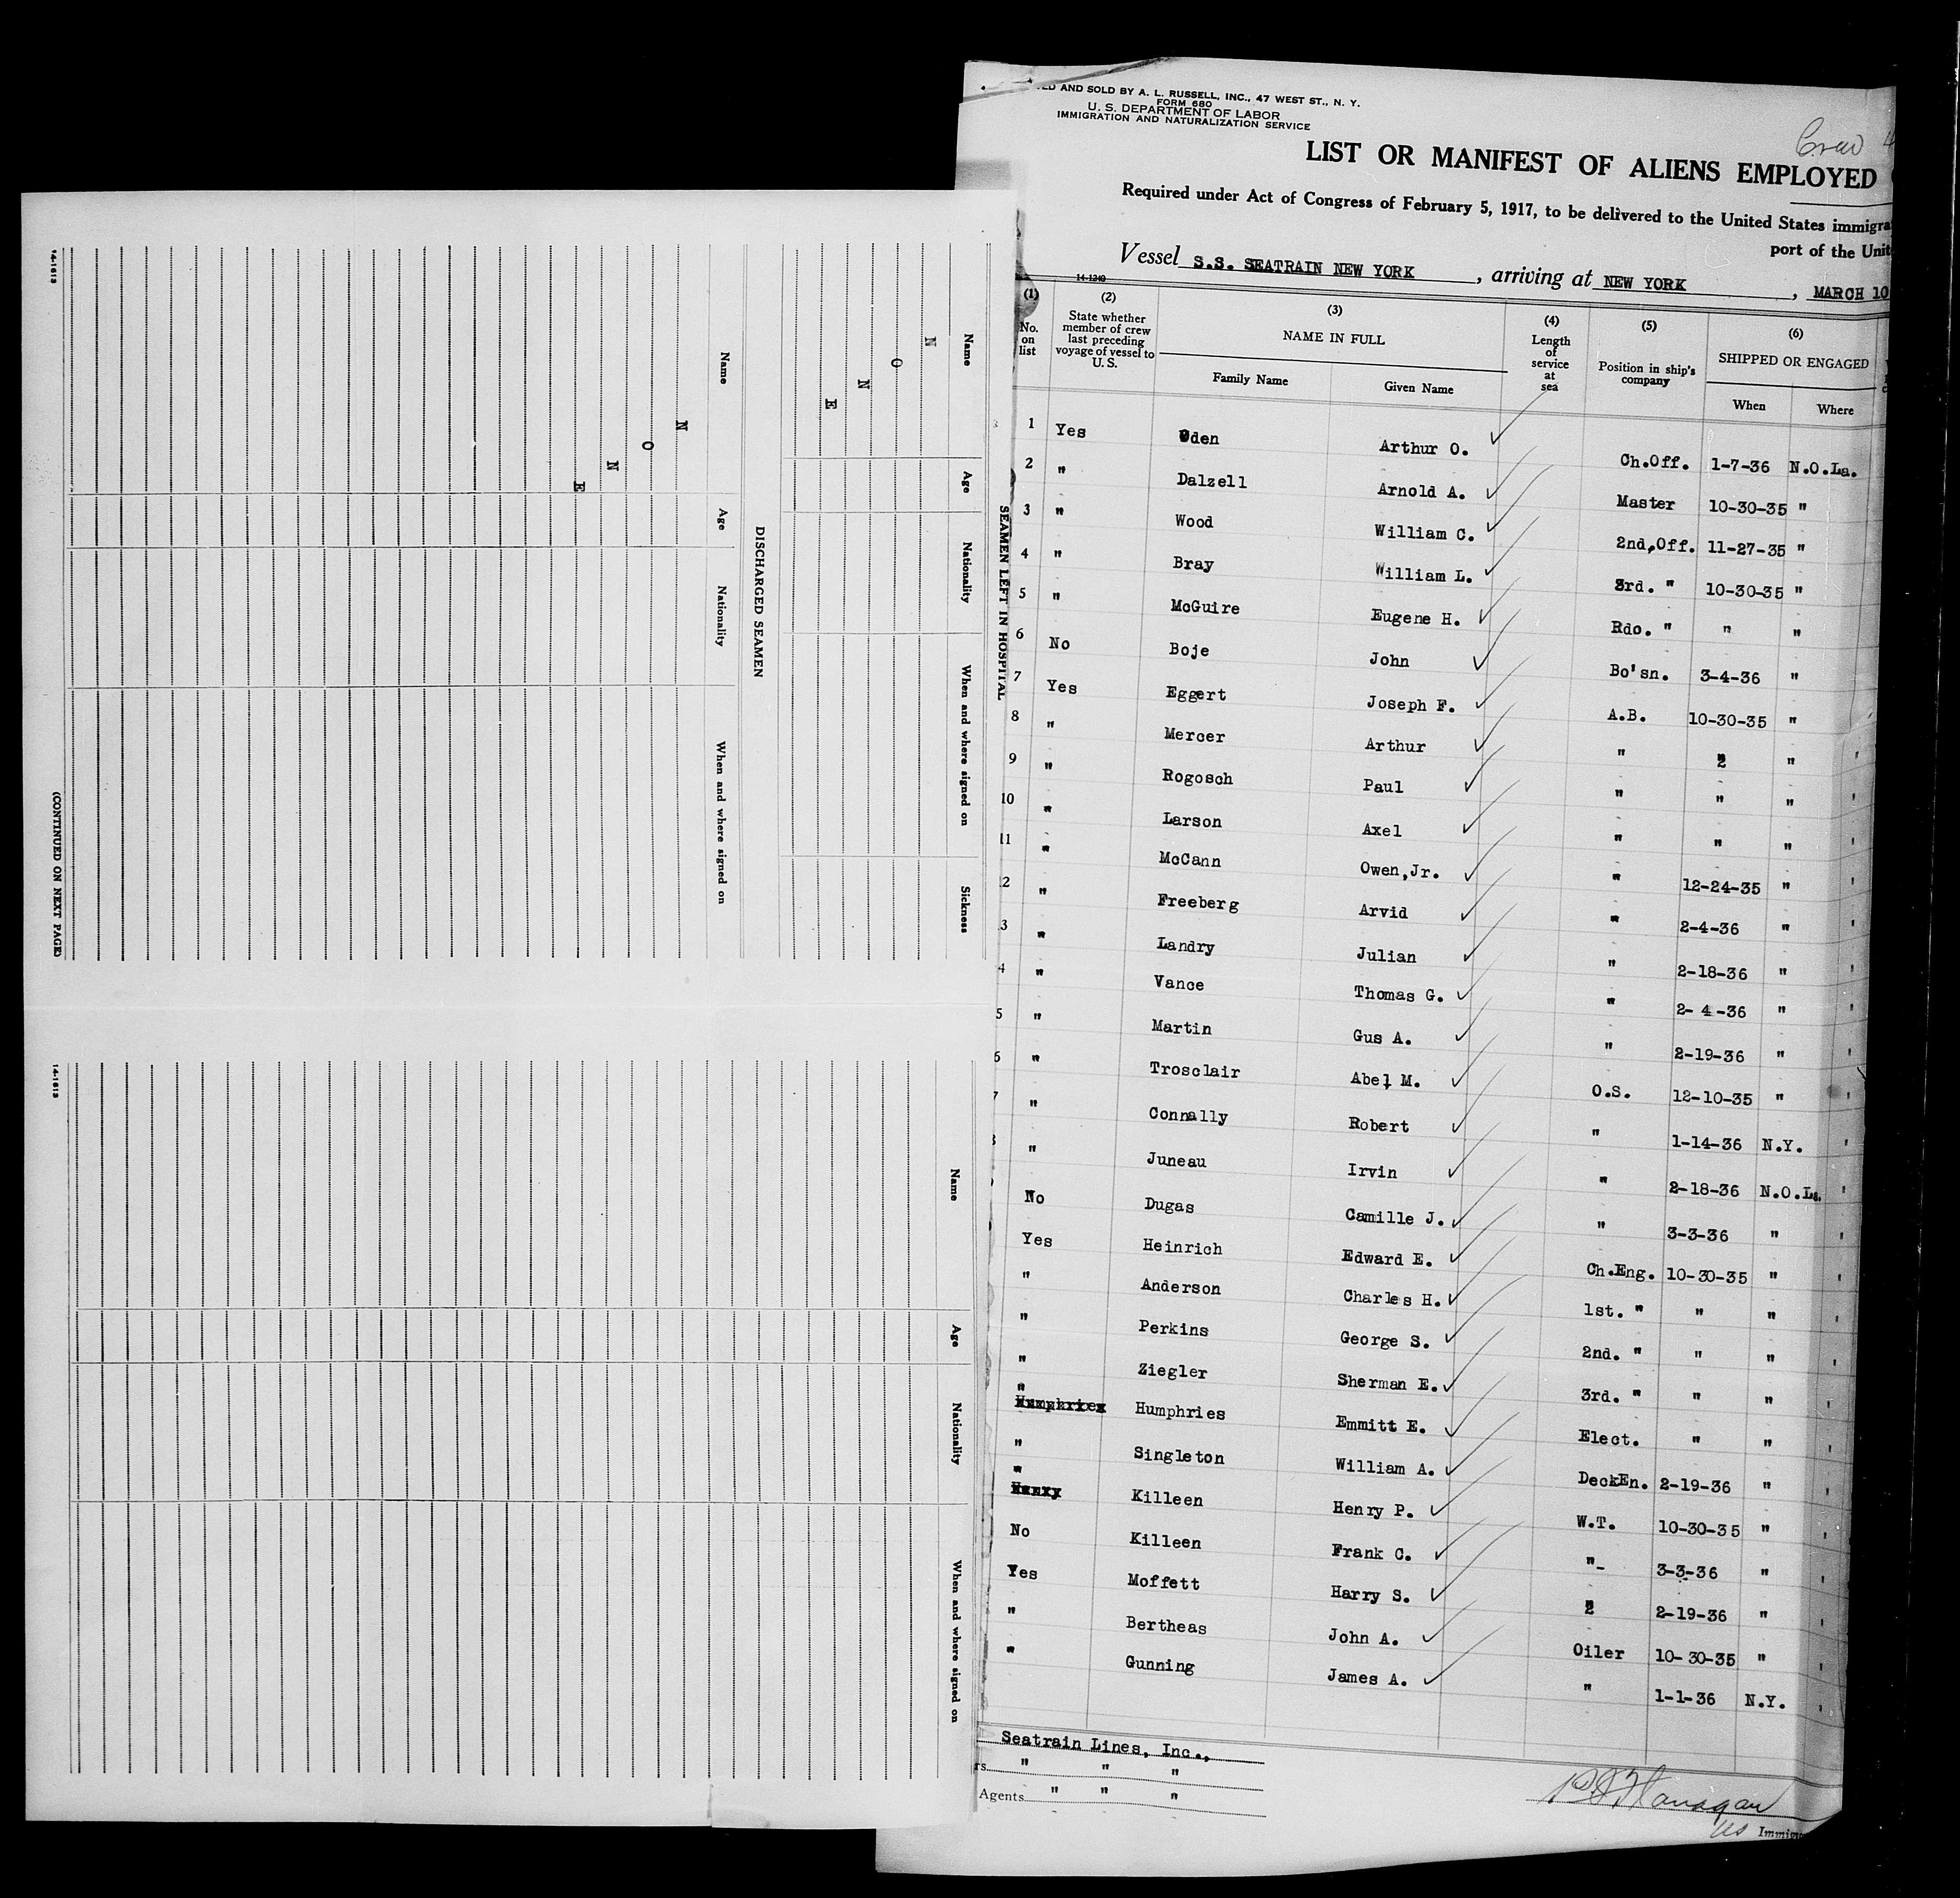 AND SOLD BY A. L. RUSSELL, INC., 47 WEST ST., N. Y.
FORM 680
U. S. DEPARTMENT OF LABOR
IMMIGRATION AND NATURALIZATION SERVICE
Crew
LIST OR MANIFEST OF ALIENS EMPLOYED
Required under Act of Congress of February 5, 1917, to be delivered to the United States
port of the
Vessel S.S. SEATRAIN NEW YORK , arriving at NEW YORK , MARCH 10
14-1240
(1) No. on list
(2) State whether member of crew last preceding voyage of vessel to U. S.
(3) NAME IN FULL
Family Name Given Name
(4) Length of service at sea
(5) Position in ship's company
(6) SHIPPED OR ENGAGED
When Where
1 Yes Oden Arthur O. Ch.Off. 1-7-36 N.O.La.
2 " Dalzell Arnold A. Master 10-30-35 "
3 " Wood William C. 2nd.Off. 11-27-35 "
4 " Bray William L. 3rd. " 10-30-35 "
5 " McGuire Eugene H. Rdo. " " "
6 No Boje John Bo'sn. 3-4-36 "
7 Yes Eggert Joseph F. A.B. 10-30-35 "
8 " Mercer Arthur " " "
9 " Rogosch Paul " " "
10 " Larson Axel " " "
11 " McCann Owen,Jr. " 12-24-35 "
2 " Freeberg Arvid " 2-4-36 "
3 " Landry Julian " 2-18-36 "
4 " Vance Thomas G. " 2- 4 -36 "
5 " Martin Gus A. " 2-19-36 "
6 " Trosclair Abel M. O.S. 12-10-35 "
7 " Connally Robert " 1-14-36 N.Y.
" Juneau Irvin " 2-18-36 N.O.La.
No Dugas Camille J. " 3-3-36 "
Yes Heinrich Edward E. Ch.Eng. 10-30-35 "
" Anderson Charles H. 1st. " " "
" Perkins George S. 2nd. " " "
" Ziegler Sherman E. 3rd. " " "
" Humphries Emmitt E. Elect. " "
" Singleton William A. DeckEn. 2-19-36 "
" Killeen Henry P. W.T. 10-30-35 "
No Killeen Frank C. "- 3-3-36 "
Yes Moffett Harry S. " 2-19-36 "
" Bertheas John A. Oiler 10-30-35 "
" Gunning James A. " 1-1-36 N.Y.
Seatrain Lines, Inc.,
" " "
Agents " " "
Flanagan
US
SEAMEN LEFT IN HOSPITAL
Name Age Nationality When and where signed on Sickness
N O N E
DISCHARGED SEAMEN
Name Age Nationality When and where signed on
N O N E
14-1613
(CONTINUED ON NEXT PAGE)
Name Age Nationality When and where signed on
14-1613